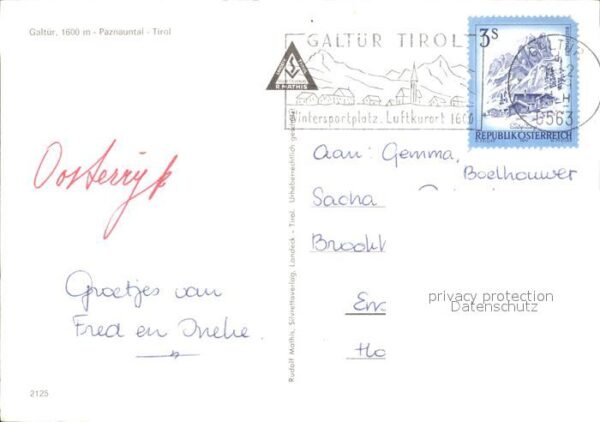 Galtür, 1600 m - Paznauntal - Tirol
Oosterrijk
Groetjes van
Fred en Ineke.
2125
Rudolf Mathis, Silvrettaverlag, Landeck - Tirol. Urheberrechtlich geschützt
R. MATHIS
GALTÜR TIROL
Wintersportplatz. Luftkurort 1600
3S
REPUBLIK ÖSTERREICH
6563
Aan: Gemma,
Boelhouwer
Sacha
privacy protection
Datenschutz